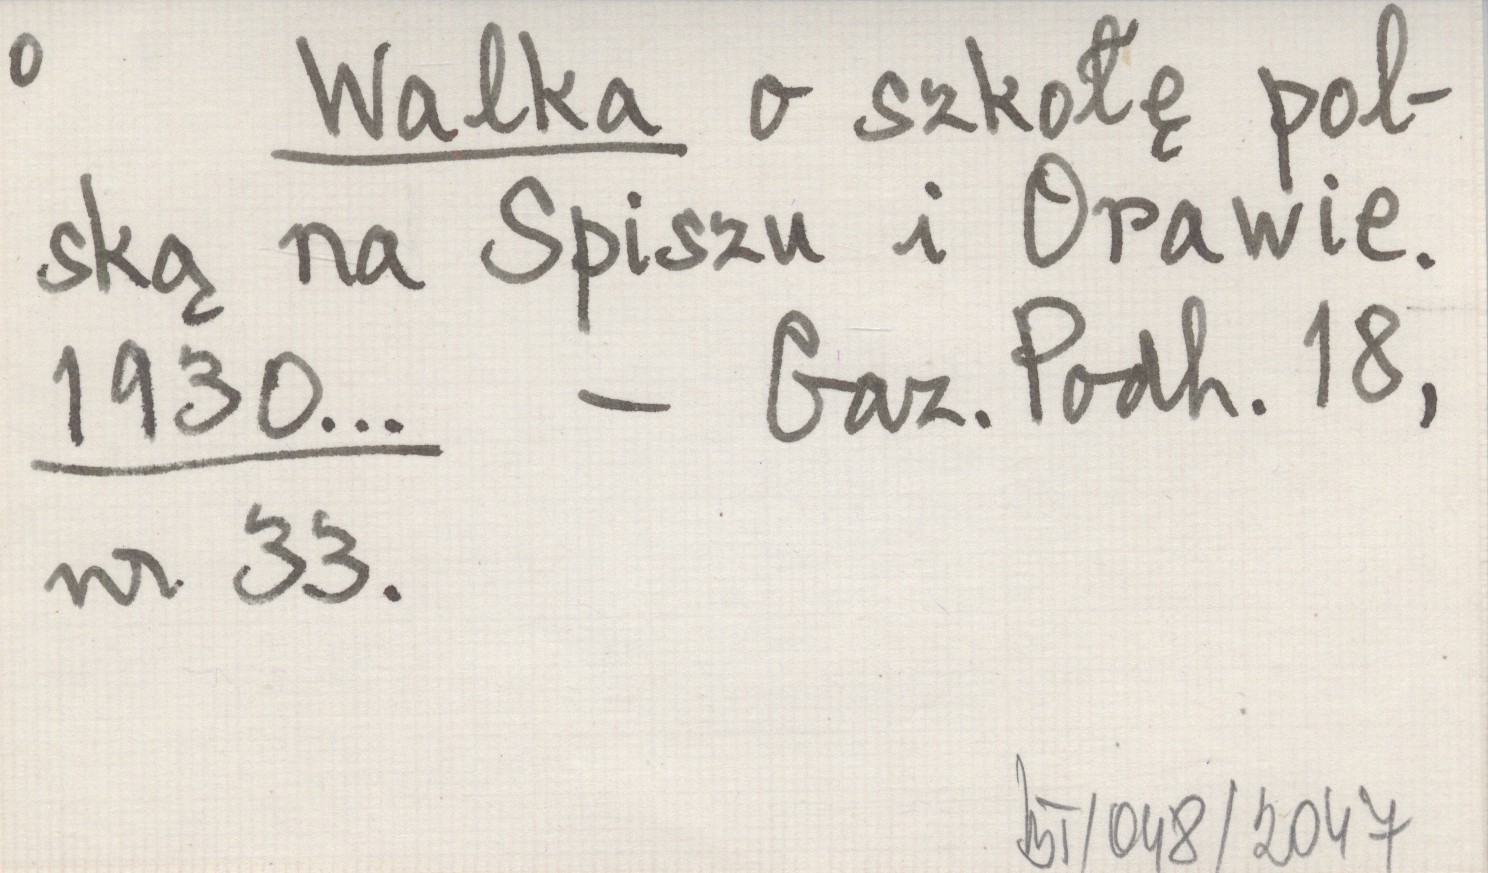 o Walka o szkołę pol-
ską na Spiszu i Orawie.
1930... – Gaz. Podh. 18,
nr 33.
BT/048/2047